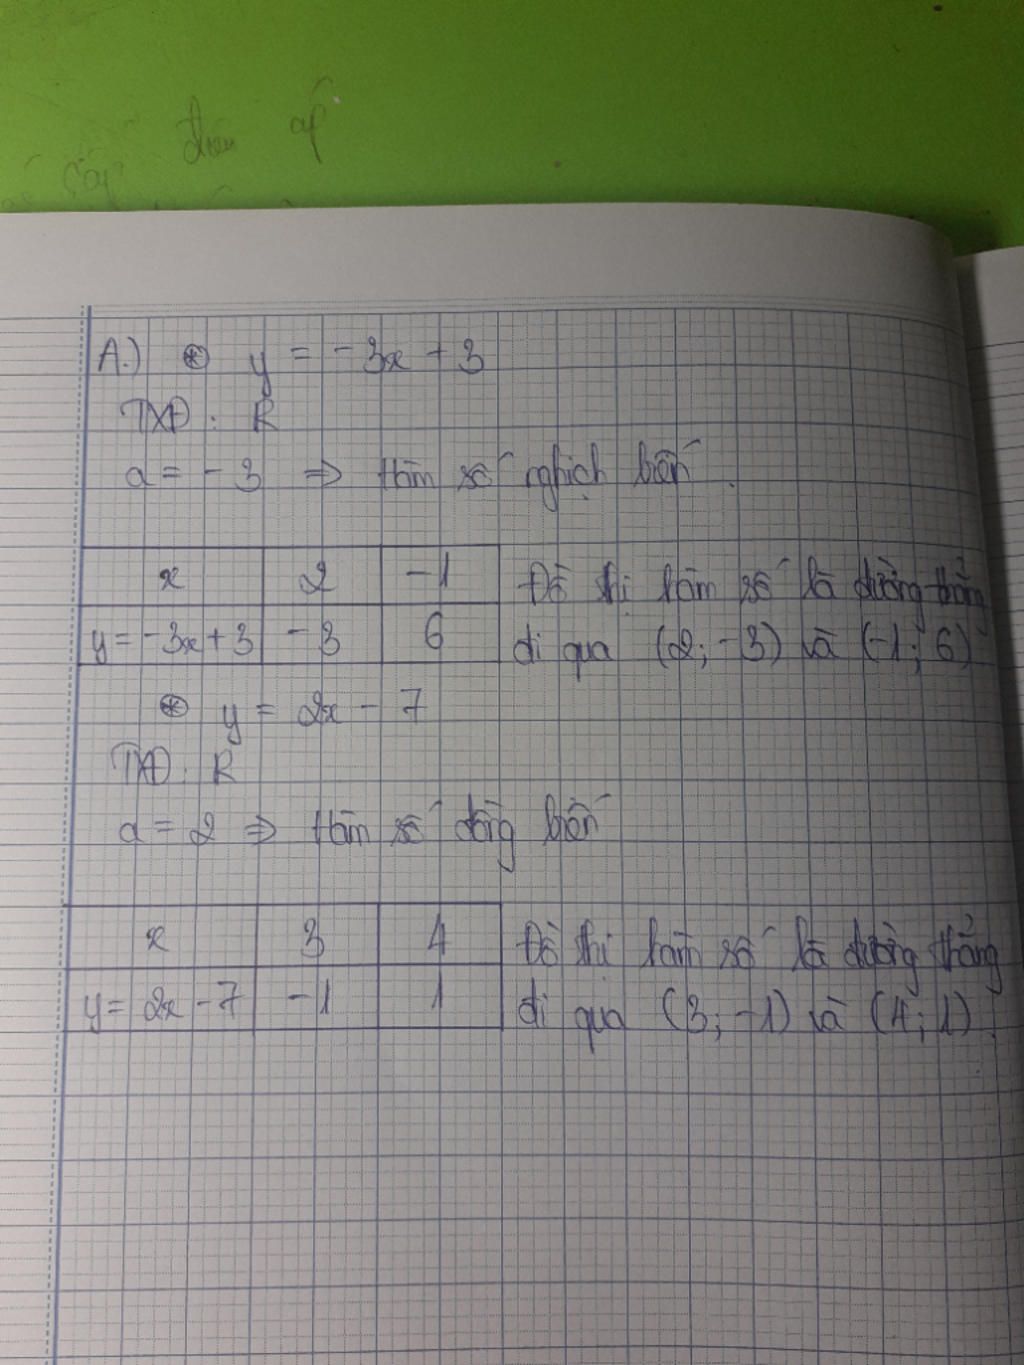 điện áp
cấp
A.) ⊛ y = -3x + 3
TXĐ : R
a = -3 ⇒ Hàm số nghịch biến.
x 2 -1 Đồ thị hàm số là đường thẳng
y = -3x + 3 -3 6 đi qua (2; -3) và (-1; 6)
⊛ y = 2x - 7
TXĐ : R
a = 2 ⇒ Hàm số đồng biến
x 3 4 Đồ thị hàm số là đường thẳng
y = 2x - 7 -1 1 đi qua (3; -1) và (4; 1).